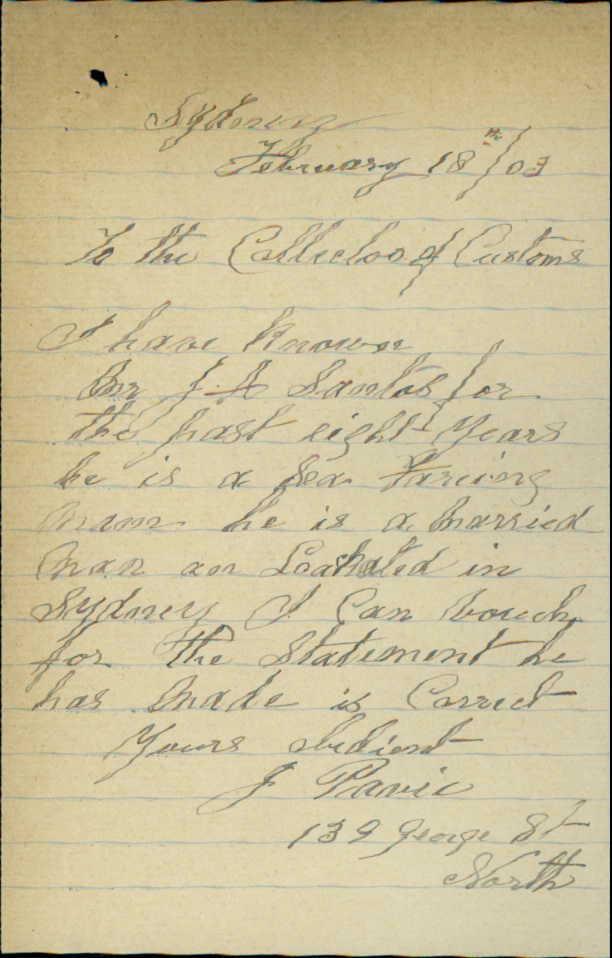 Sydney
February 18th/03
To the Collector of Customs
I have known
Mr J A Santos for
the past eight years
he is a Sea Faring
man he is a married
man an Loakated in
Sydney I Can vouch
for the Statement he
has made is Correct
Yours obedient
J Pavic
139 George St
North